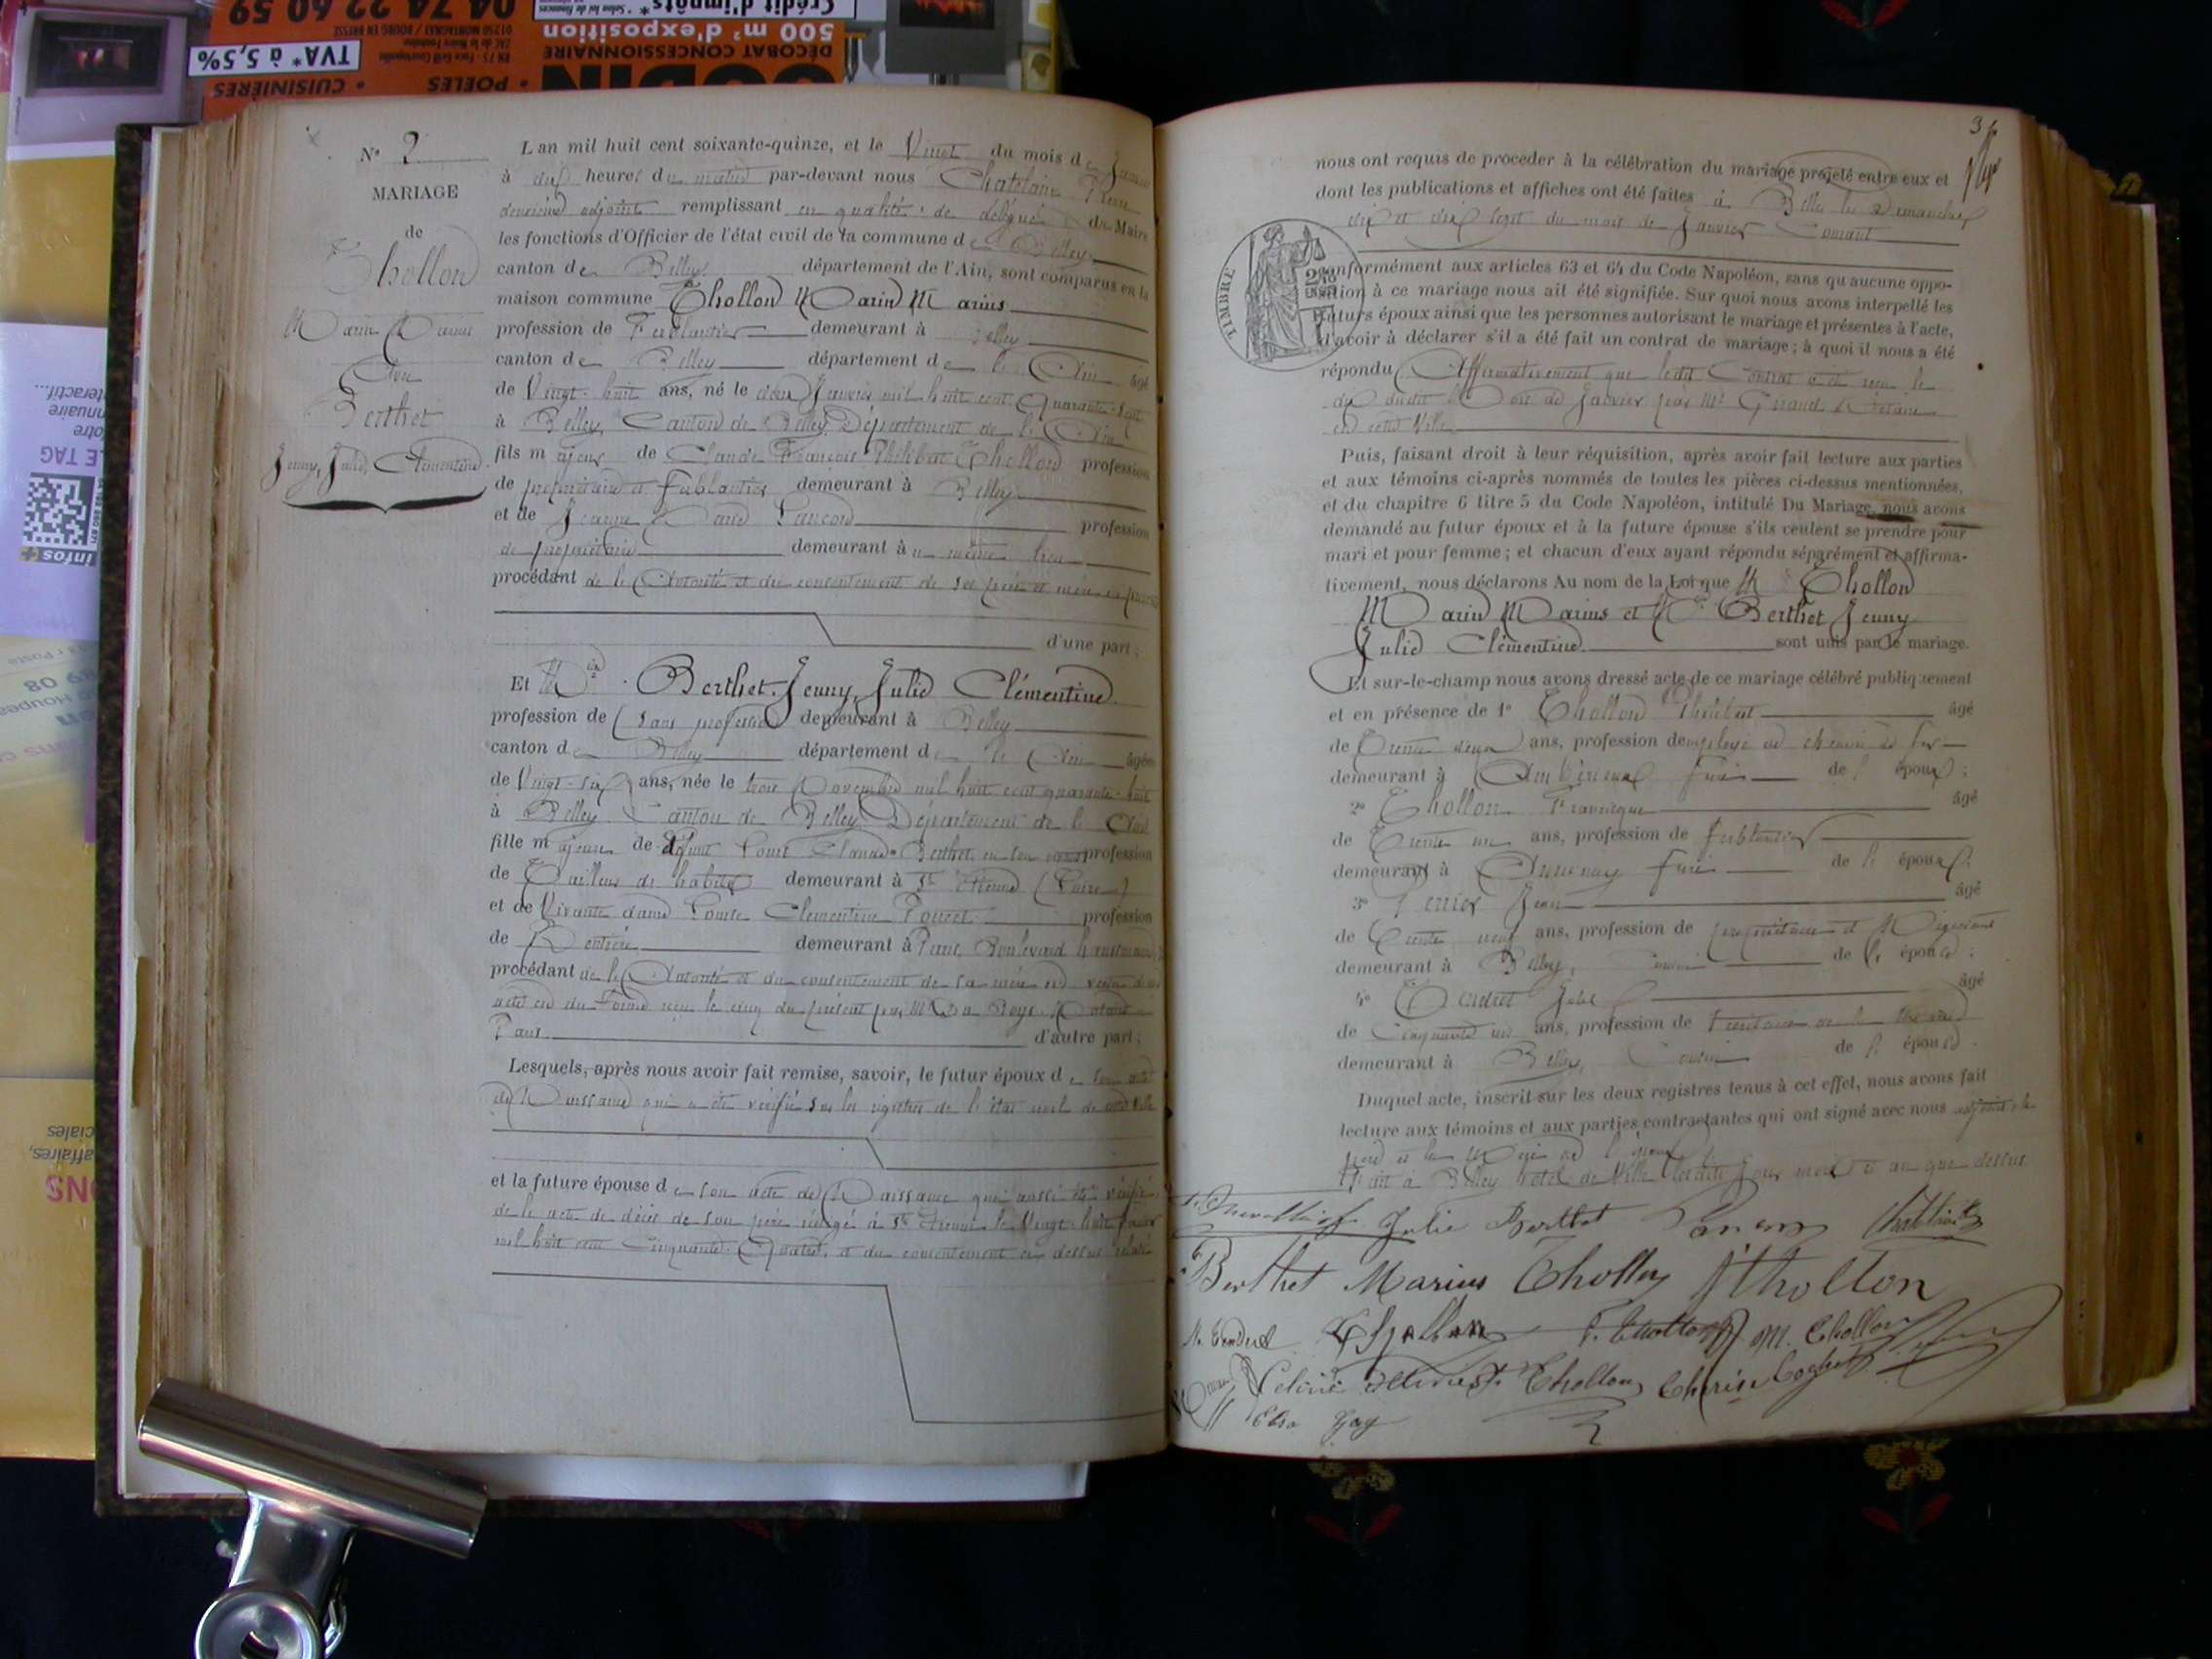 04 74 22 60 59
01250 MONTAGNAT / BOURG EN BRESSE
TVA* à 5,5%
• CUISINIÈRES
• POELES
Crédit d'impôts*
500 m² d'exposition
DÉCOBAT CONCESSIONNAIRE
LE TAG
infos +
N° 2
MARIAGE
de
Thollon
Marin Marius
Et
Berthet
Jenny, Julie, Clémentine
L'an mil huit cent soixante-quinze, et le Vingt du mois de Janvier
à dix heures du matin par-devant nous Chatelain
deuxième adjoint remplissant en qualité de délégué du Maire
les fonctions d'Officier de l'état civil de la commune de Belley
canton de Belley département de l'Ain, sont comparus en la
maison commune Thollon Marin Marius
profession de Ferblantier demeurant à Belley
canton de Belley département de l'Ain âgé
de Vingt-huit ans, né le deux Janvier mil huit cent Quarante-sept
à Belley, Canton de Belley, Département de l'Ain
fils majeur de Claude François Philibert Thollon profession
de propriétaire et Ferblantier demeurant à Belley
et de Jeanne profession
de propriétaire demeurant au même lieu
procédant de l'Autorité et du consentement de ses père et mère ici présents
d'une part;
Et Mlle Berthet, Jenny, Julie Clémentine
profession de (sans profession) demeurant à Belley
canton de Belley département de l'Ain âgée
de Vingt-six ans, née le trois Novembre mil huit cent quarante-huit
à Belley Canton de Belley Département de l'Ain
fille majeure de défunt Louis Claude Berthet en son vivant profession
de Tailleur de habits demeurant à St Etienne (Loire)
et de Vivante dame Louise Clémentine Poncet profession
de Rentière demeurant à Paris, Boulevard haussmann
procédant de l'Autorité et du consentement de sa mère en vertu d'un
acte en due forme reçu le cinq du présent par Me Notaire
Paris d'autre part;
Lesquels, après nous avoir fait remise, savoir, le futur époux de son acte
de Naissance qui a été vérifié sur les registres de l'état civil de cette Ville
et la future épouse de son acte de Naissance qui aussi été vérifié,
de l'acte de décès de son père rédigé à St Etienne le Vingt-huit
mil huit cent Cinquante-Quatre, et du consentement ci dessus relaté
3
nous ont requis de procéder à la célébration du mariage projeté entre eux et
dont les publications et affiches ont été faites à Belley les Dimanches
dix et dix sept du mois de Janvier Courant
TIMBRE
conformément aux articles 63 et 64 du Code Napoléon, sans qu'aucune oppo-
sition à ce mariage nous ait été signifiée. Sur quoi nous avons interpellé les
futurs époux ainsi que les personnes autorisant le mariage et présentes à l'acte,
d'avoir à déclarer s'il a été fait un contrat de mariage; à quoi il nous a été
répondu Affirmativement que ledit Contrat a été reçu le
dix dudit Mois de Janvier par Me Giraud Notaire
en cette Ville
Puis, faisant droit à leur réquisition, après avoir fait lecture aux parties
et aux témoins ci-après nommés de toutes les pièces ci-dessus mentionnées,
et du chapitre 6 titre 5 du Code Napoléon, intitulé Du Mariage, nous avons
demandé au futur époux et à la future épouse s'ils veulent se prendre pour
mari et pour femme; et chacun d'eux ayant répondu séparément et affirma-
tivement, nous déclarons Au nom de la Loi que M Thollon
Marin Marius et Mlle Berthet Jenny
Julie Clémentine sont unis par le mariage.
Et sur-le-champ nous avons dressé acte de ce mariage célébré publiquement
et en présence de 1° Thollon Philibert âgé
de Trente deux ans, profession d'employé au chemin de fer
demeurant à Ambérieux frère de l'époux;
2° Thollon François âgé
de Trente un ans, profession de ferblantier
demeurant à Annonay frère de l'époux;
3° Jean âgé
de Trente neuf ans, profession de propriétaire et Négociant
demeurant à Belley, Cousin de l'épouse;
4° Tendret Jules âgé
de Cinquante un ans, profession de
demeurant à Belley, Cousin de l'épouse.
Duquel acte, inscrit sur les deux registres tenus à cet effet, nous avons fait
lecture aux témoins et aux parties contractantes qui ont signé avec nous adjoint, le
père et la Mère de l'époux
Fait à Belley hotel de Ville lesdits Jour mois et an que dessus
Julie Berthet
Berthet Marius Thollon Thollon
Thollon F. Thollon M. Thollon
Thollon
Elsa Gay